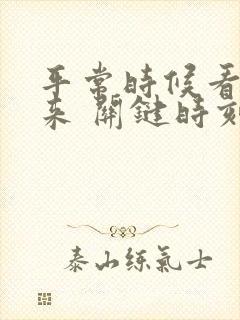 平常時候看
来 關鍵時刻
泰山练氣士